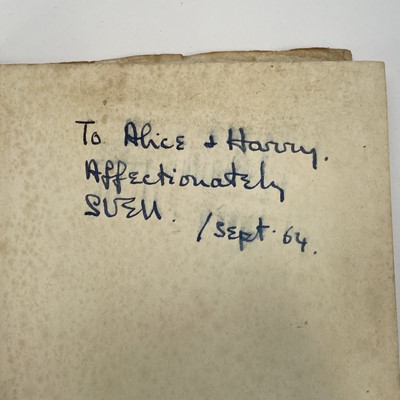 To Alice + Harry.
Affectionately
SVEN.
/Sept. 64.